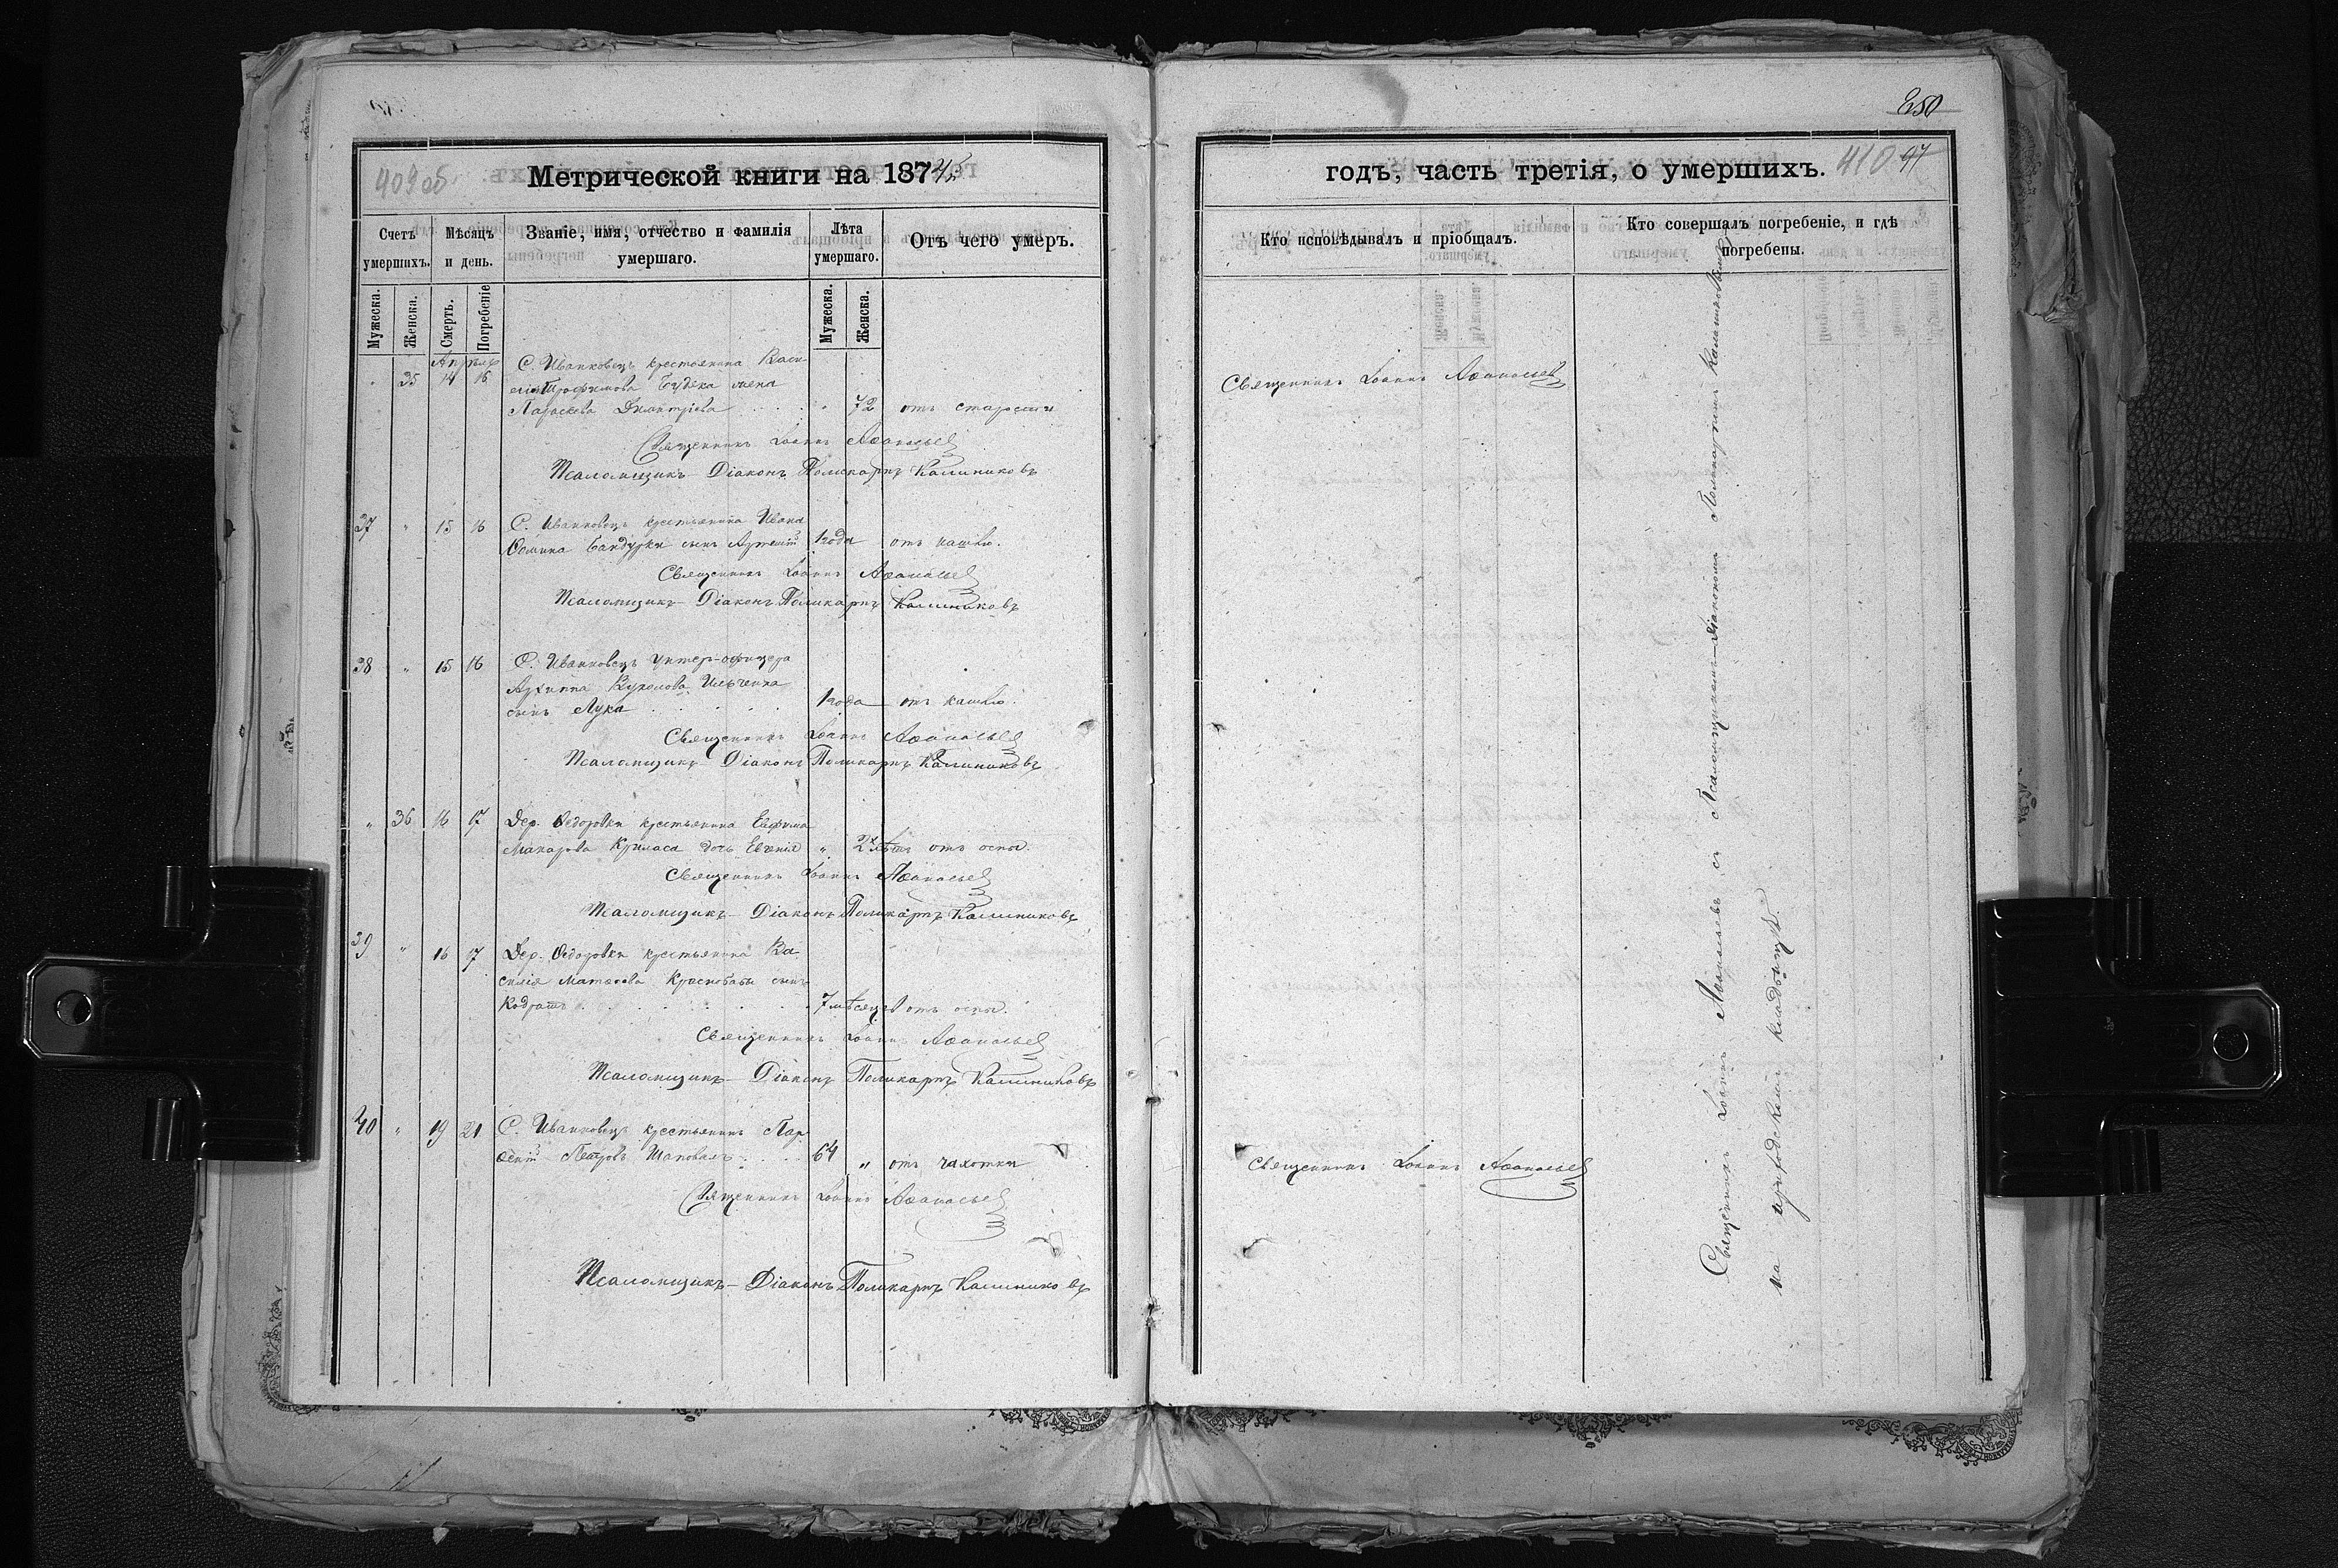 250
409 об.
Метрической книги на 187
годъ, часть третія, о умершихъ.
410
97
Счетъ умершихъ.
Мѣсяцъ и день.
Званіе, имя, отчество и фамилія умершаго.
Лѣта умершаго.
Отъ чего умеръ.
Кто исповѣдывалъ и пріобщалъ.
Кто совершалъ погребеніе, и гдѣ погребены.
Мужеска.
Женска.
Смерть.
Погребеніе
Мужеска.
Женска.
Апрѣль
" 35 14 16 С. Иванковецъ крестьянина Васи-
лія Трофимова жена
Параскева Димитріева " 72 отъ старости
Священникъ Іоаннъ Аѳанасьевъ
Священникъ Іоаннъ Аѳанасьевъ
Псаломщикъ-Діаконъ Поликарпъ Калиниковъ
37 " 15 16 С. Иванковецъ крестьянина Ивана
Бандурки сынъ 1 года отъ кашлю.
Священникъ Іоаннъ Аѳанасьевъ
Псаломщикъ-Діаконъ Поликарпъ Калиниковъ
38 " 15 16 С. Иванковецъ унтер-офицера
Архиппа Ильченка
сынъ Лука 1 года отъ кашлю.
Священникъ Іоаннъ Аѳанасьевъ
Псаломщикъ-Діаконъ Поликарпъ Калиниковъ
" 36 16 17 Дер. Ѳедоровки крестьянина Евфима
Макарова дочь Евгенія " 2 лѣтъ отъ оспы.
Священникъ Іоаннъ Аѳанасьевъ
Псаломщикъ-Діаконъ Поликарпъ Калиниковъ
39 " 16 17 Дер. Ѳедоровки крестьянина Ва-
силія Матѳеева сынъ
Кодратъ 7 мѣсяцевъ отъ оспы.
Священникъ Іоаннъ Аѳанасьевъ
Псаломщикъ-Діаконъ Поликарпъ Калиниковъ
40 " 19 21 С. Иванковецъ крестьянинъ Пар-
ѳеній Петровъ Шаповалъ 64 " отъ чахотки
Священникъ Іоаннъ Аѳанасьевъ
Священникъ Іоаннъ Аѳанасьевъ
Псаломщикъ-Діаконъ Поликарпъ Калиниковъ
Священникъ Іоаннъ Аѳанасьевъ съ Псаломщикомъ-Діакономъ Поликарпомъ Калиниковымъ
на приходскомъ кладбищѣ.